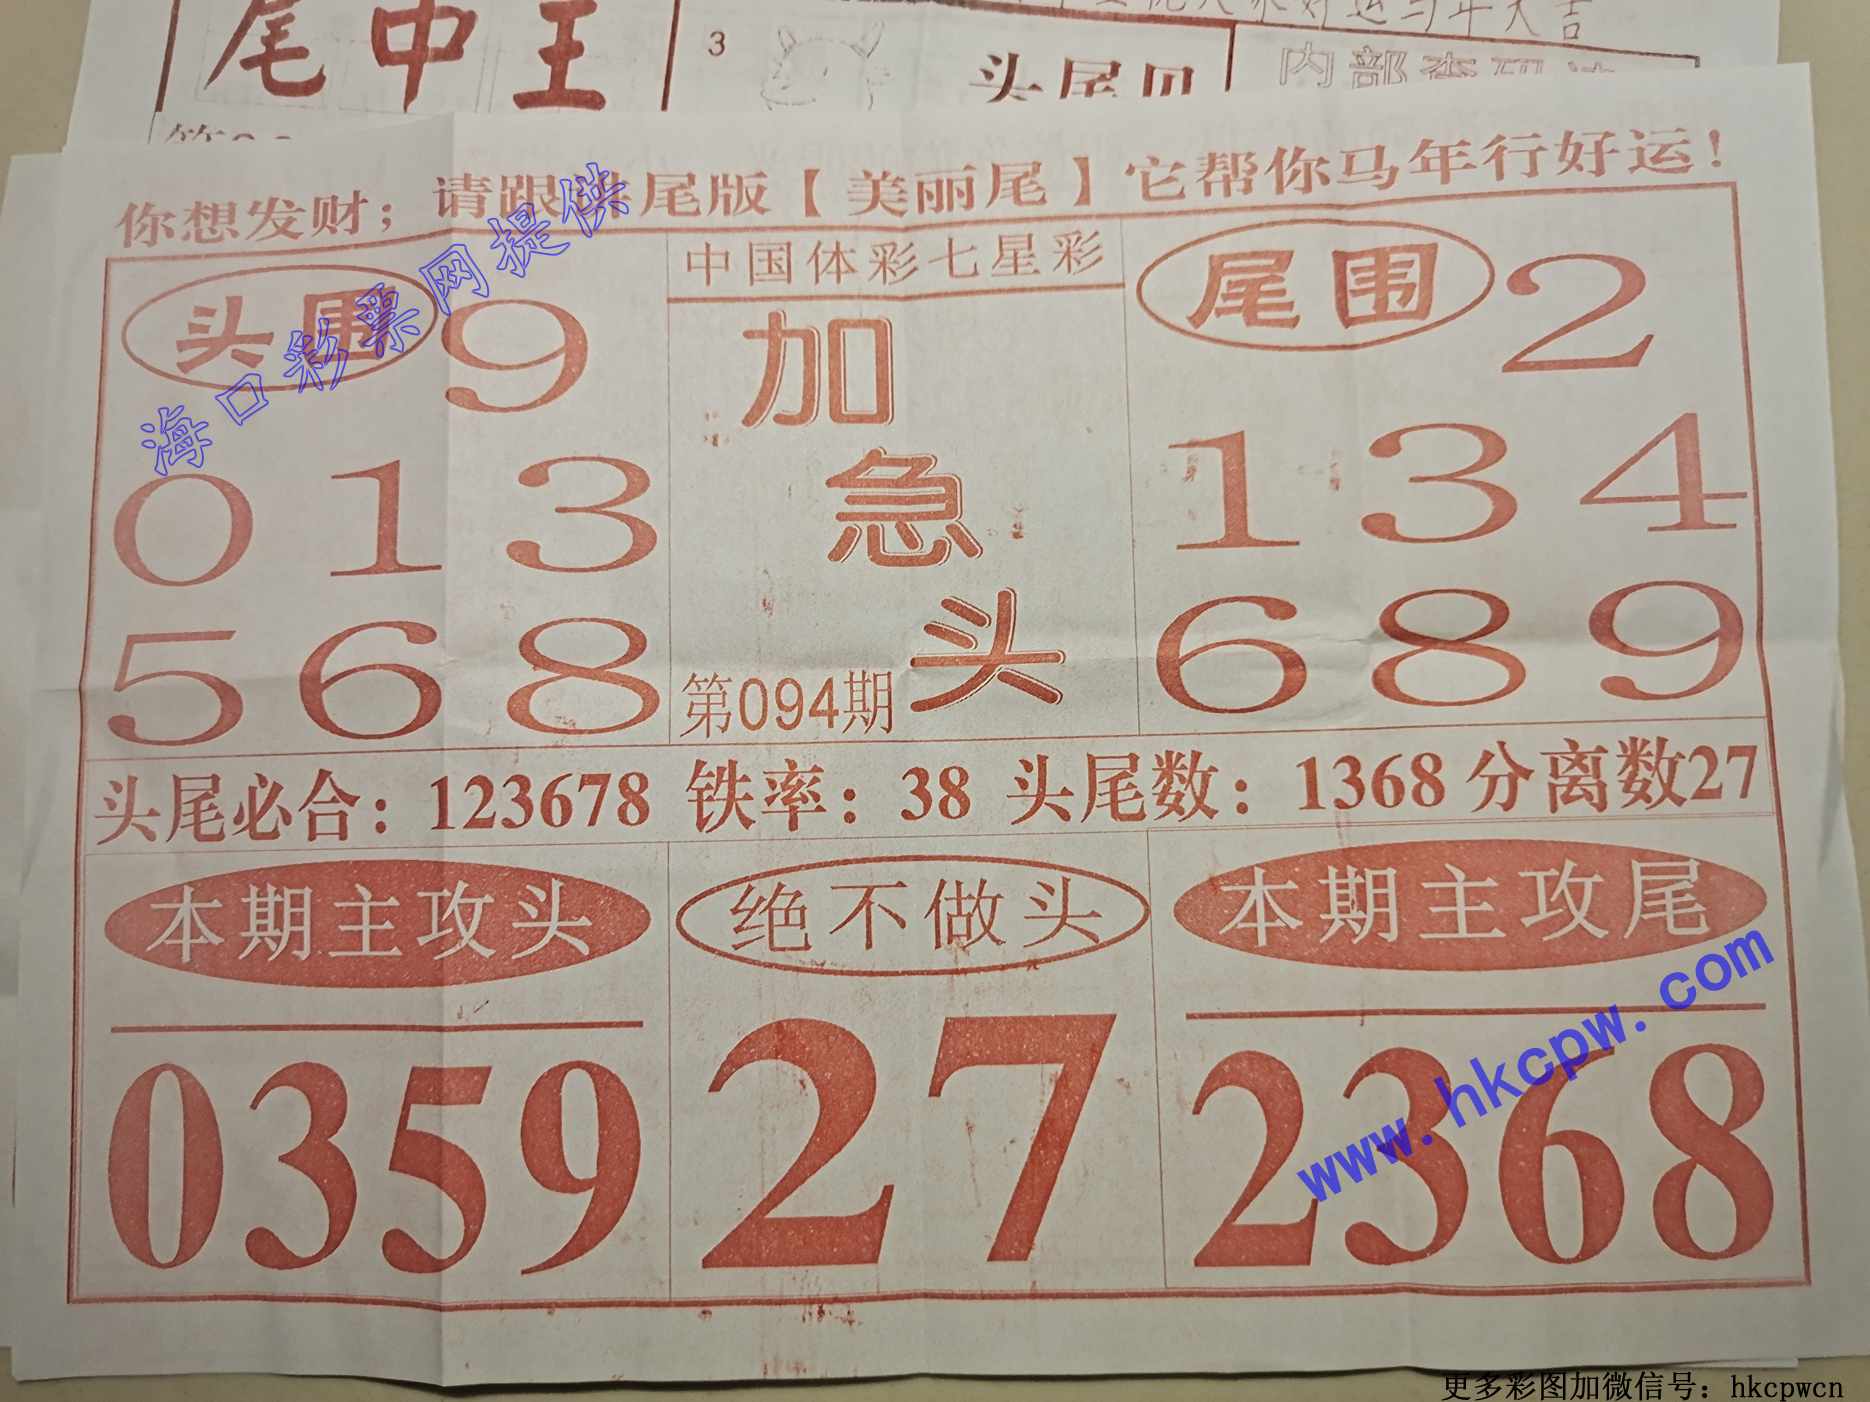 尾中王
3
头尾
内部
你想发财；请跟 尾版【美丽尾】它帮你马年行好运！
头围
9
中国体彩七星彩
尾围
2
加
急
头
0 1 3
1 3 4
5 6 8
第094期
6 8 9
头尾必合：123678 铁率：38 头尾数：1368 分离数27
本期主攻头
绝不做头
本期主攻尾
0359
27
2368
海口彩票网提供
www.hkcpw.com
更多彩图加微信号：hkcpwcn